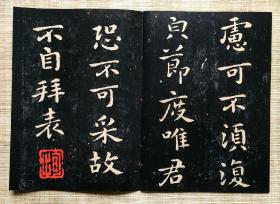 慮可不須復
節度唯君
恐不可采故
不自拜表